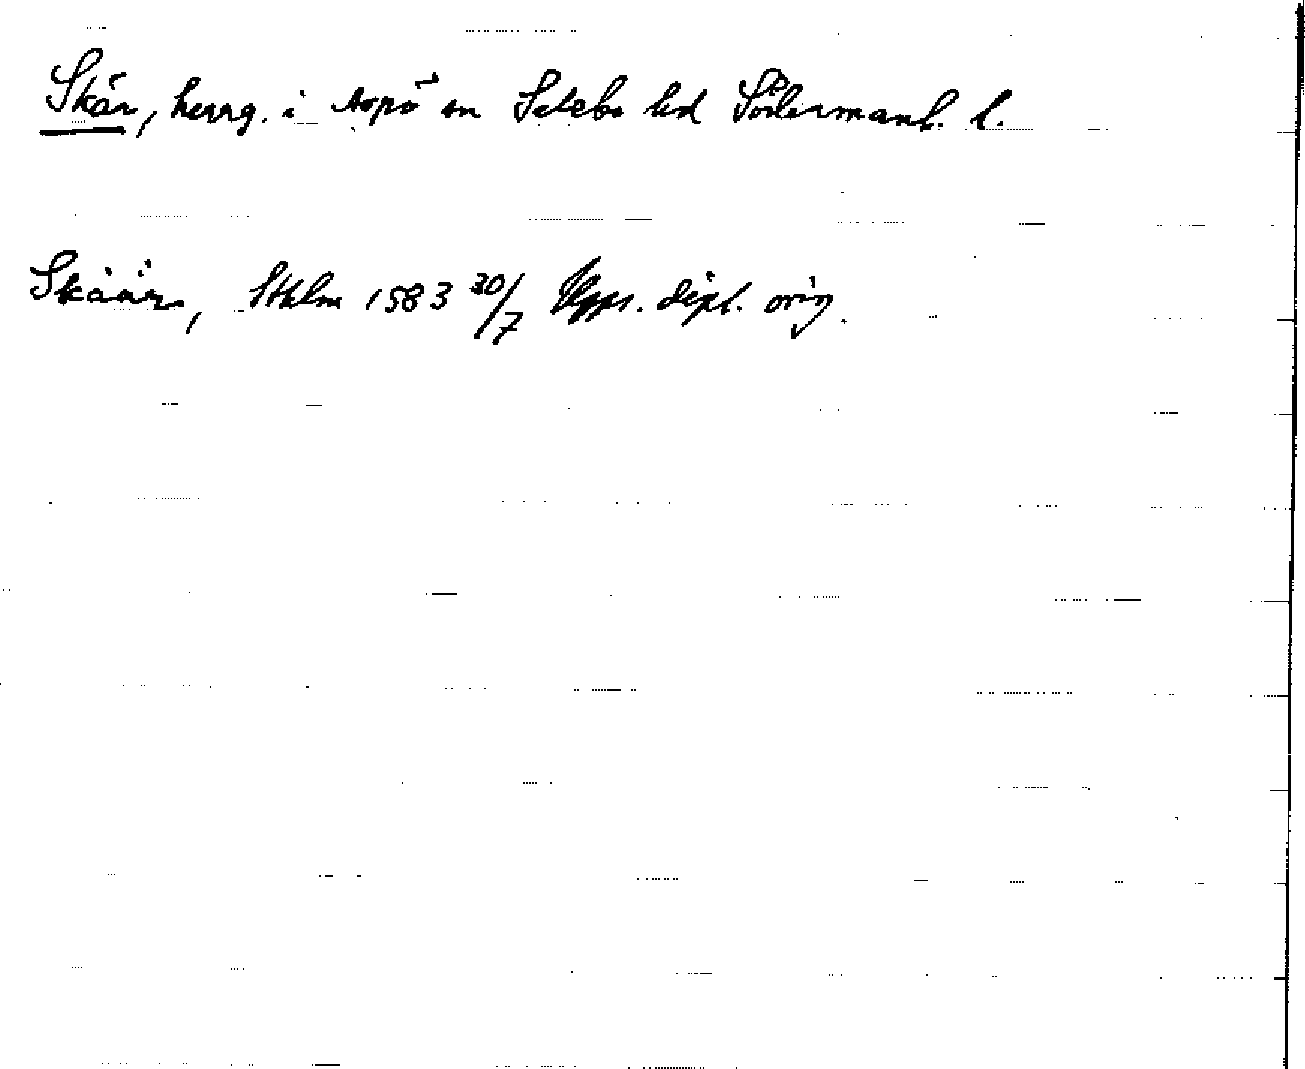 Skär, herrg. i Aspö sn Selebo hd Södermanl. l.
Skäär, Sthlm 1583 30/7 Upps. dipl. orig.